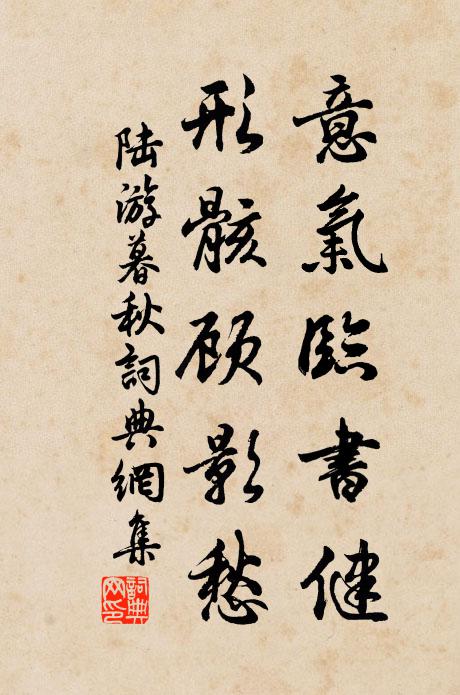 意氣臨書健
形骸顾影愁
陆游暮秋詞典網集
詞典網印